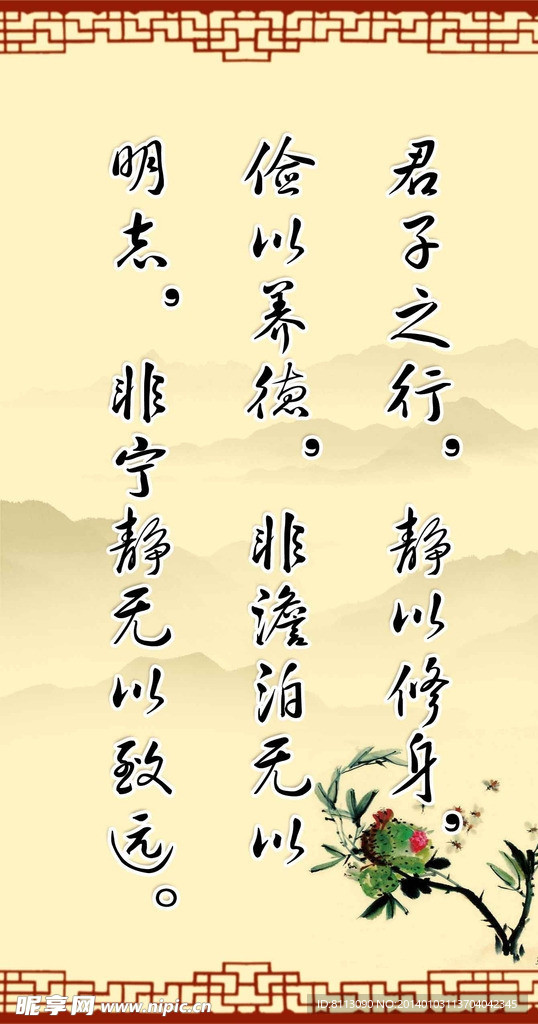 君子之行，静以修身，
俭以养德，非澹泊无以
明志，非宁静无以致远。
昵享网 www.nipic.cn
ID:8113090 NO:20140103113704042345